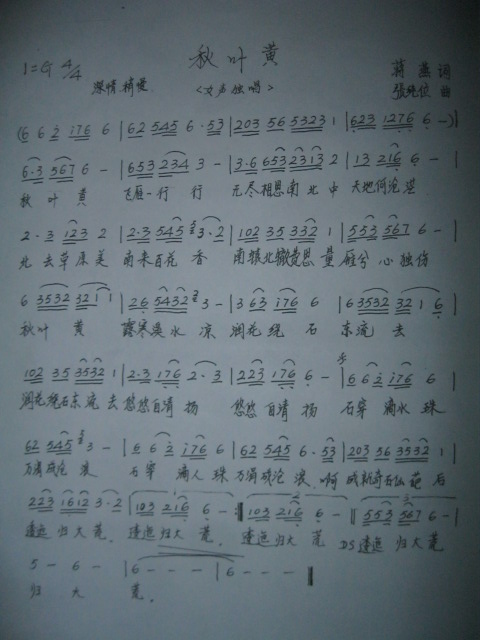 秋叶黄
1=G 4/4
深情 稍慢 <女声独唱>
蒋燕 词
张纯位 曲
(6 6 2 176 6 | 62 545 6·53 | 203 56 5323 1 | 623 1276 6 -)|
6·3 567 6 - | 653 234 3 - | 3·6 653 2313 2 | 13 216 6 - |
秋叶黄 飞雁一行行 元尽相思南北中 天地何沧茫
2·3 123 2 | 2·3 545 3·2 | 102 35 332 1 | 553 567 6 - |
北去草原美 南来百花香 南辕北辙费思量 雁兮心独伤
6 3532 32 1 1 | 26 5432 3 - | 3 63 176 6 | 6 3532 32 1 6 |
秋叶黄 露寒溪水凉 润花绕石东流去
102 35 3532 1 | 2·3 176 2·3 | 223 176 6 - | 6 6 2 176 6 |
润花绕石东流去 悠悠自清扬 悠悠自清扬 石窜滴水珠
62 545 3 - | 6 6 2 176 6 | 62 545 6·53 | 203 56 3532 1 |
万滴成沧浪 石窜滴人珠 万滴成沧浪 啊 成新奇石仙葩后
223 1612 3·2 | 103 216 6 - :| 103 216 6 - || 553 567 6 - |
蓬迤归大荒 蓬迤归大荒 蓬迤归大荒 DS 蓬迤归大荒
5 - 6 - | 6 - - - | 6 - - - |
归大荒